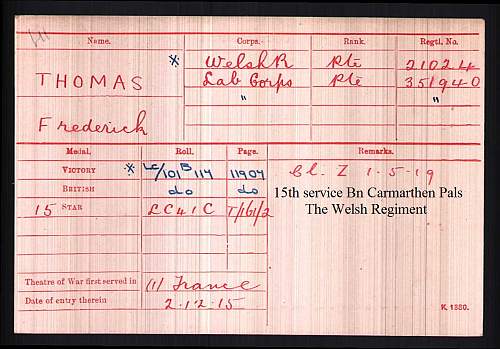 Name. Corps. Rank. Regtl. No.
THOMAS * Welsh R Pte 21024
Lab Corps Pte 351940
" "
Frederick
Medal. Roll. Page. Remarks.
VICTORY * LC/101 B 114 11907 Cl. Z 1-5-19
BRITISH do do 15th service Bn Carmarthen Pals
15 STAR LC41C T/161/2 The Welsh Regiment
Theatre of War first served in (1) France
Date of entry therein 2.12.15
K. 1380.